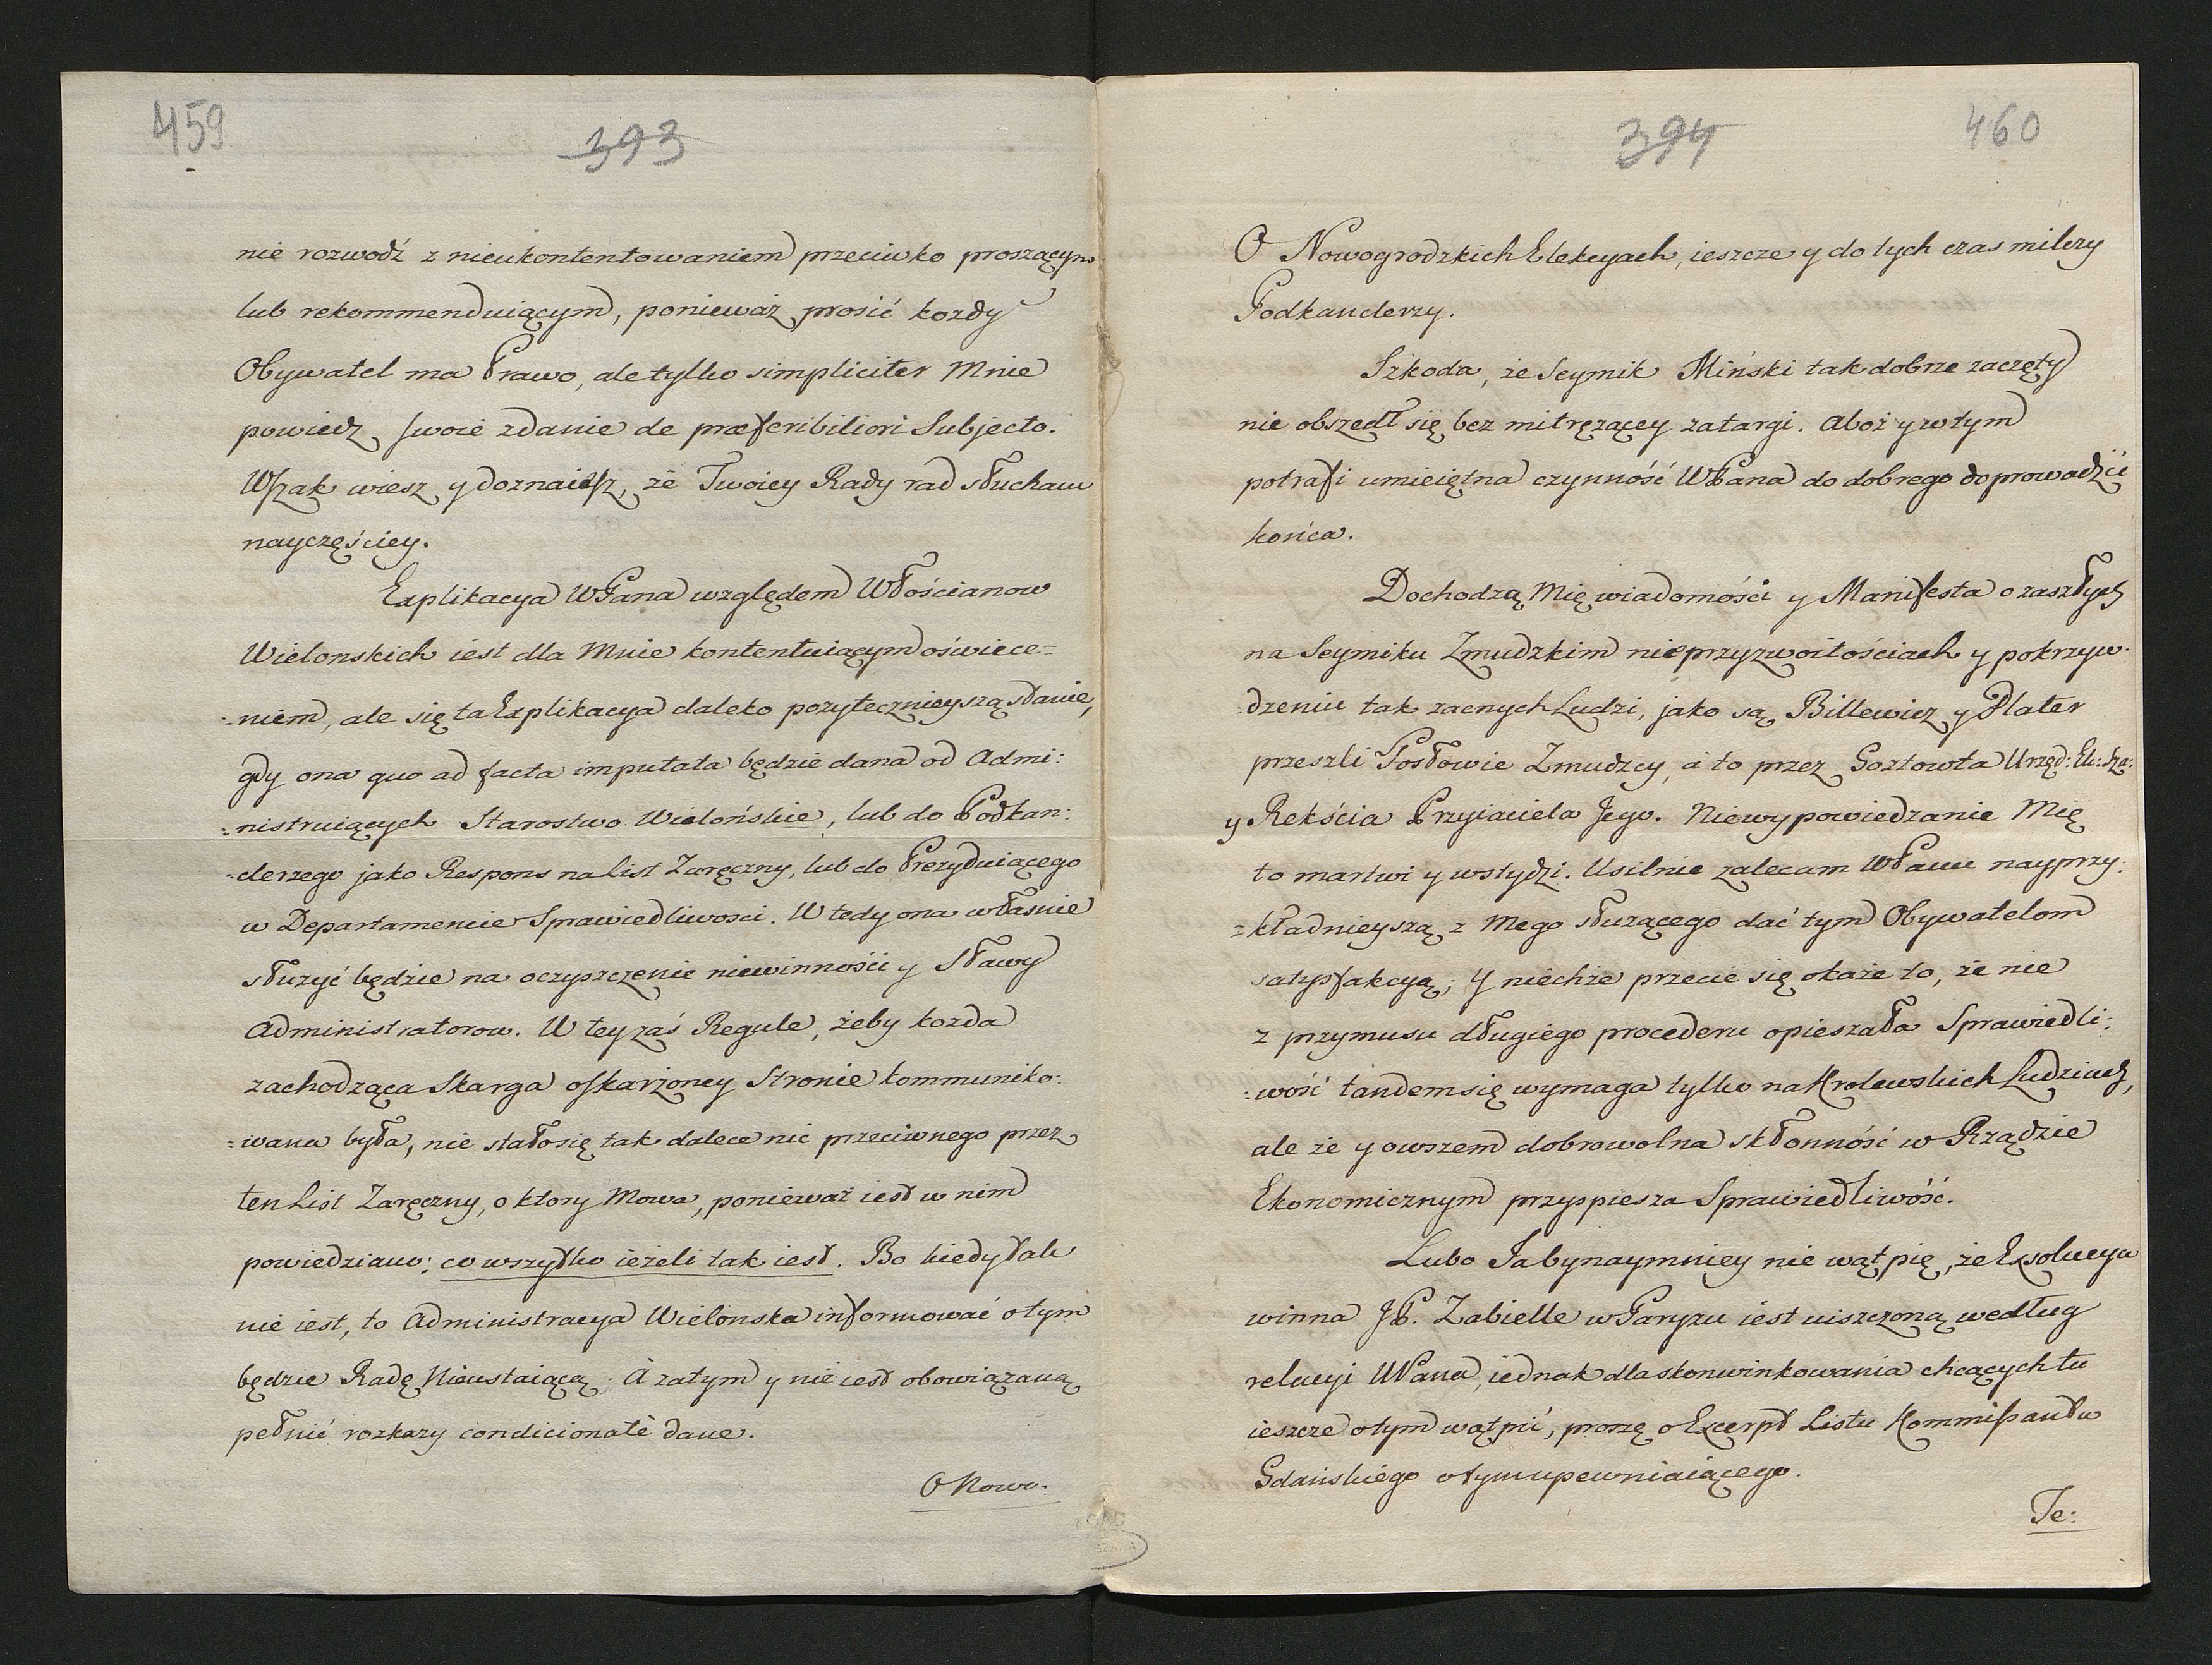 459
393
nie rozwodź z nieukontentowaniem przeciwko proszącym
lub rekommenduiącym, ponieważ prosić kozdy
Obywatel ma Prawo, ale tylko simpliciter Mnie
powiedz swoie zdanie de præferibiliori Subjecto.
Wszak wiesz y doznaiesz, że Twoiey Rady rad słucham
nayczęściey.
Explikacya WPana względem Włościanow
Wielonskich iest dla Mnie kontentuiącym oświece=
=niem, ale się ta Explikacya daleko pozytecznieyszą stanie,
gdy ona quo ad facta imputata będzie dana od Admi=
=nistruiących Starostwo Wielońskie, lub do Podkan=
=clerzego jako Respons na List Zaręczny, lub do Prezyduiącego
w Departamencie Sprawiedliwosci. W tedy ona własnie
słuzyć będzie na oczyszczenie niewinności y Sławy
Administratorow. W tey zaś Regule, żeby kozda
zachodząca Skarga oskarżoney Stronie kommuniko=
=wana była, nie stało się tak dalece nic przeciwnego przez
ten List Zaręczny, o ktory Mowa, ponieważ iest w nim
powiedziano: co wszystko ieżeli tak iest. Bo kiedy tak
nie iest, to Administracya Wielonska informować o tym
będzie Radę Nieustaiącą; A zatym y nie iest obowiązaną
pełnić rozkazy condicionatè dane.
O Nowo:
394
460
O Nowogrodzkich Elekcyach, ieszcze y do tych czas milczy
Podkanclerzy.
Szkoda, że Seymik Miński tak dobrze zaczęty
nie obszedł się bez mitręzącey zatargi. Aboż y w tym
potrafi umieiętna czynność WPana do dobrego doprowadzić
końca.
Dochodzą Mię wiadomości y Manifesta o zaszłych
na Seymiku Zmudzkim nieprzyzwoitościach y pokrzyw=
=dzeniu tak zacnych Ludzi, jako są Billewicz y Plater
przeszli Posłowie Zmudzcy, a to przez Goztowta Urzęd: Ek: Sza:
y Rekścia Przyiaciela Jego. Niewypowiedzanie Mię
to martwi y wstydzi. Usilnie zalecam WPanu nayprzy=
=kładnieyszą z Mego służącego dać tym Obywatelom
satysfakcyą; Y niechże przecie się okaże to, że nie
z przymusu długiego procederu opieszała Sprawiedli=
=wość tandem się wymaga tylko na Krolewskich Ludziach,
ale że y owszem dobrowolna skłonność w Rządzie
Ekonomicznym przyspiesza Sprawiedliwość.
Lubo Ja bynaymniey nie wątpię, że Exsolucya
winna JP. Zabielle w Paryzu iest uiszczoną według
relacyi WPana, iednak dla skonwinkowania chcących tu
ieszcze o tym wątpić, proszę o Excerpt Listu Kommissanta
Gdańskiego o tym upewniaiącego.
Te: